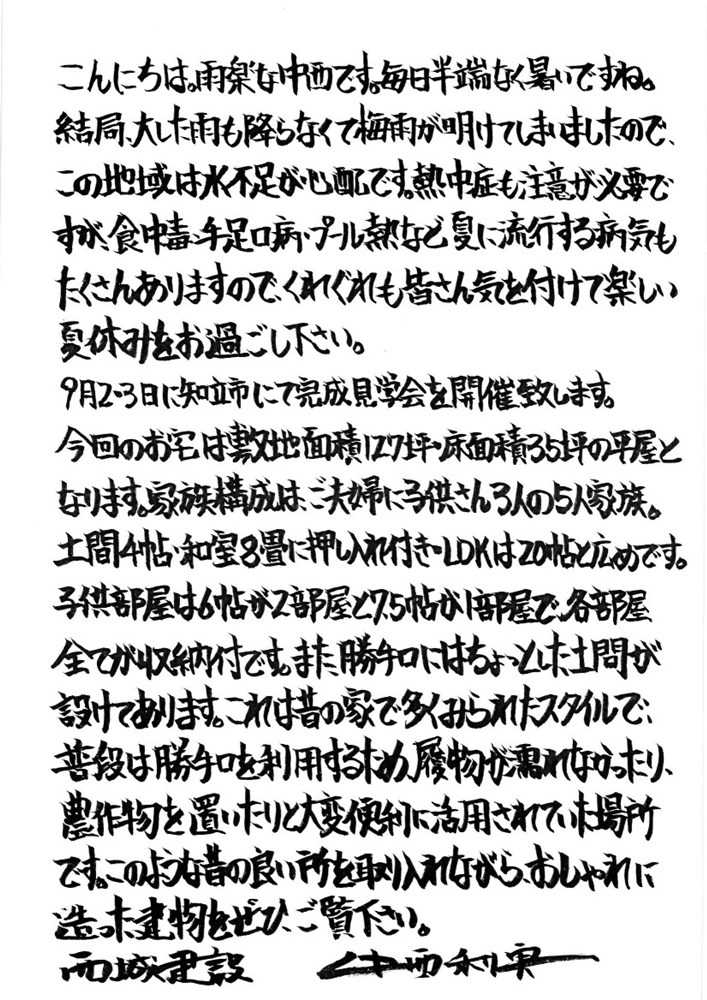 こんにちは。雨楽な中西です。毎日半端なく暑いですね。
結局、大した雨も降らなくて梅雨が明けてしまいましたので、
この地域は水不足が心配です。熱中症も注意が必要で
すが、食中毒・手足口病・プール熱など、夏に流行する病気も
たくさんありますので、くれぐれも皆さん気を付けて楽しい
夏休みをお過ごし下さい。
9月2・3日に知立市にて完成見学会を開催致します。
今回のお宅は敷地面積127坪・床面積35坪の平屋と
なります。家族構成は、ご夫婦に子供さん3人の5人家族。
土間4帖・和室8畳に押し入れ付き・LDKは20帖と広めです。
子供部屋は6帖が2部屋と7.5帖が1部屋で、各部屋
全てが収納付です。また、勝手口にはちょっとした土間が
設けてあります。これは昔の家で多くみられたスタイルで、
普段は勝手口を利用するため、履物が濡れなかったり、
農作物を置いたりと大変便利に活用されていた場所
です。このような昔の良い所を取り入れながら、おしゃれに
造った建物をぜひ、ご覧下さい。
西城建設 中西利実